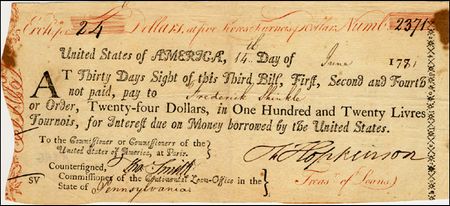 Exchᵉ 24 Dollars, at five Livres Tournois ⅌ Dollar, Numb. 2371
United States of AMERICA, 14th Day of June 177
AT Thirty Days Sight of this Third Bill, First, Second and Fourth
not paid, pay to Frederick
or Order, Twenty-four Dollars, in One Hundred and Twenty Livres
Tournois, for Interest due on Money borrowed by the United States.
To the Commissioner or Commissioners of the
United States of America, at Paris.
Fs Hopkinson
Countersigned, Tho. Smith
Treasr of Loans
Commissioner of the Continental Loan-Office in the
State of Pennsylvania
SV